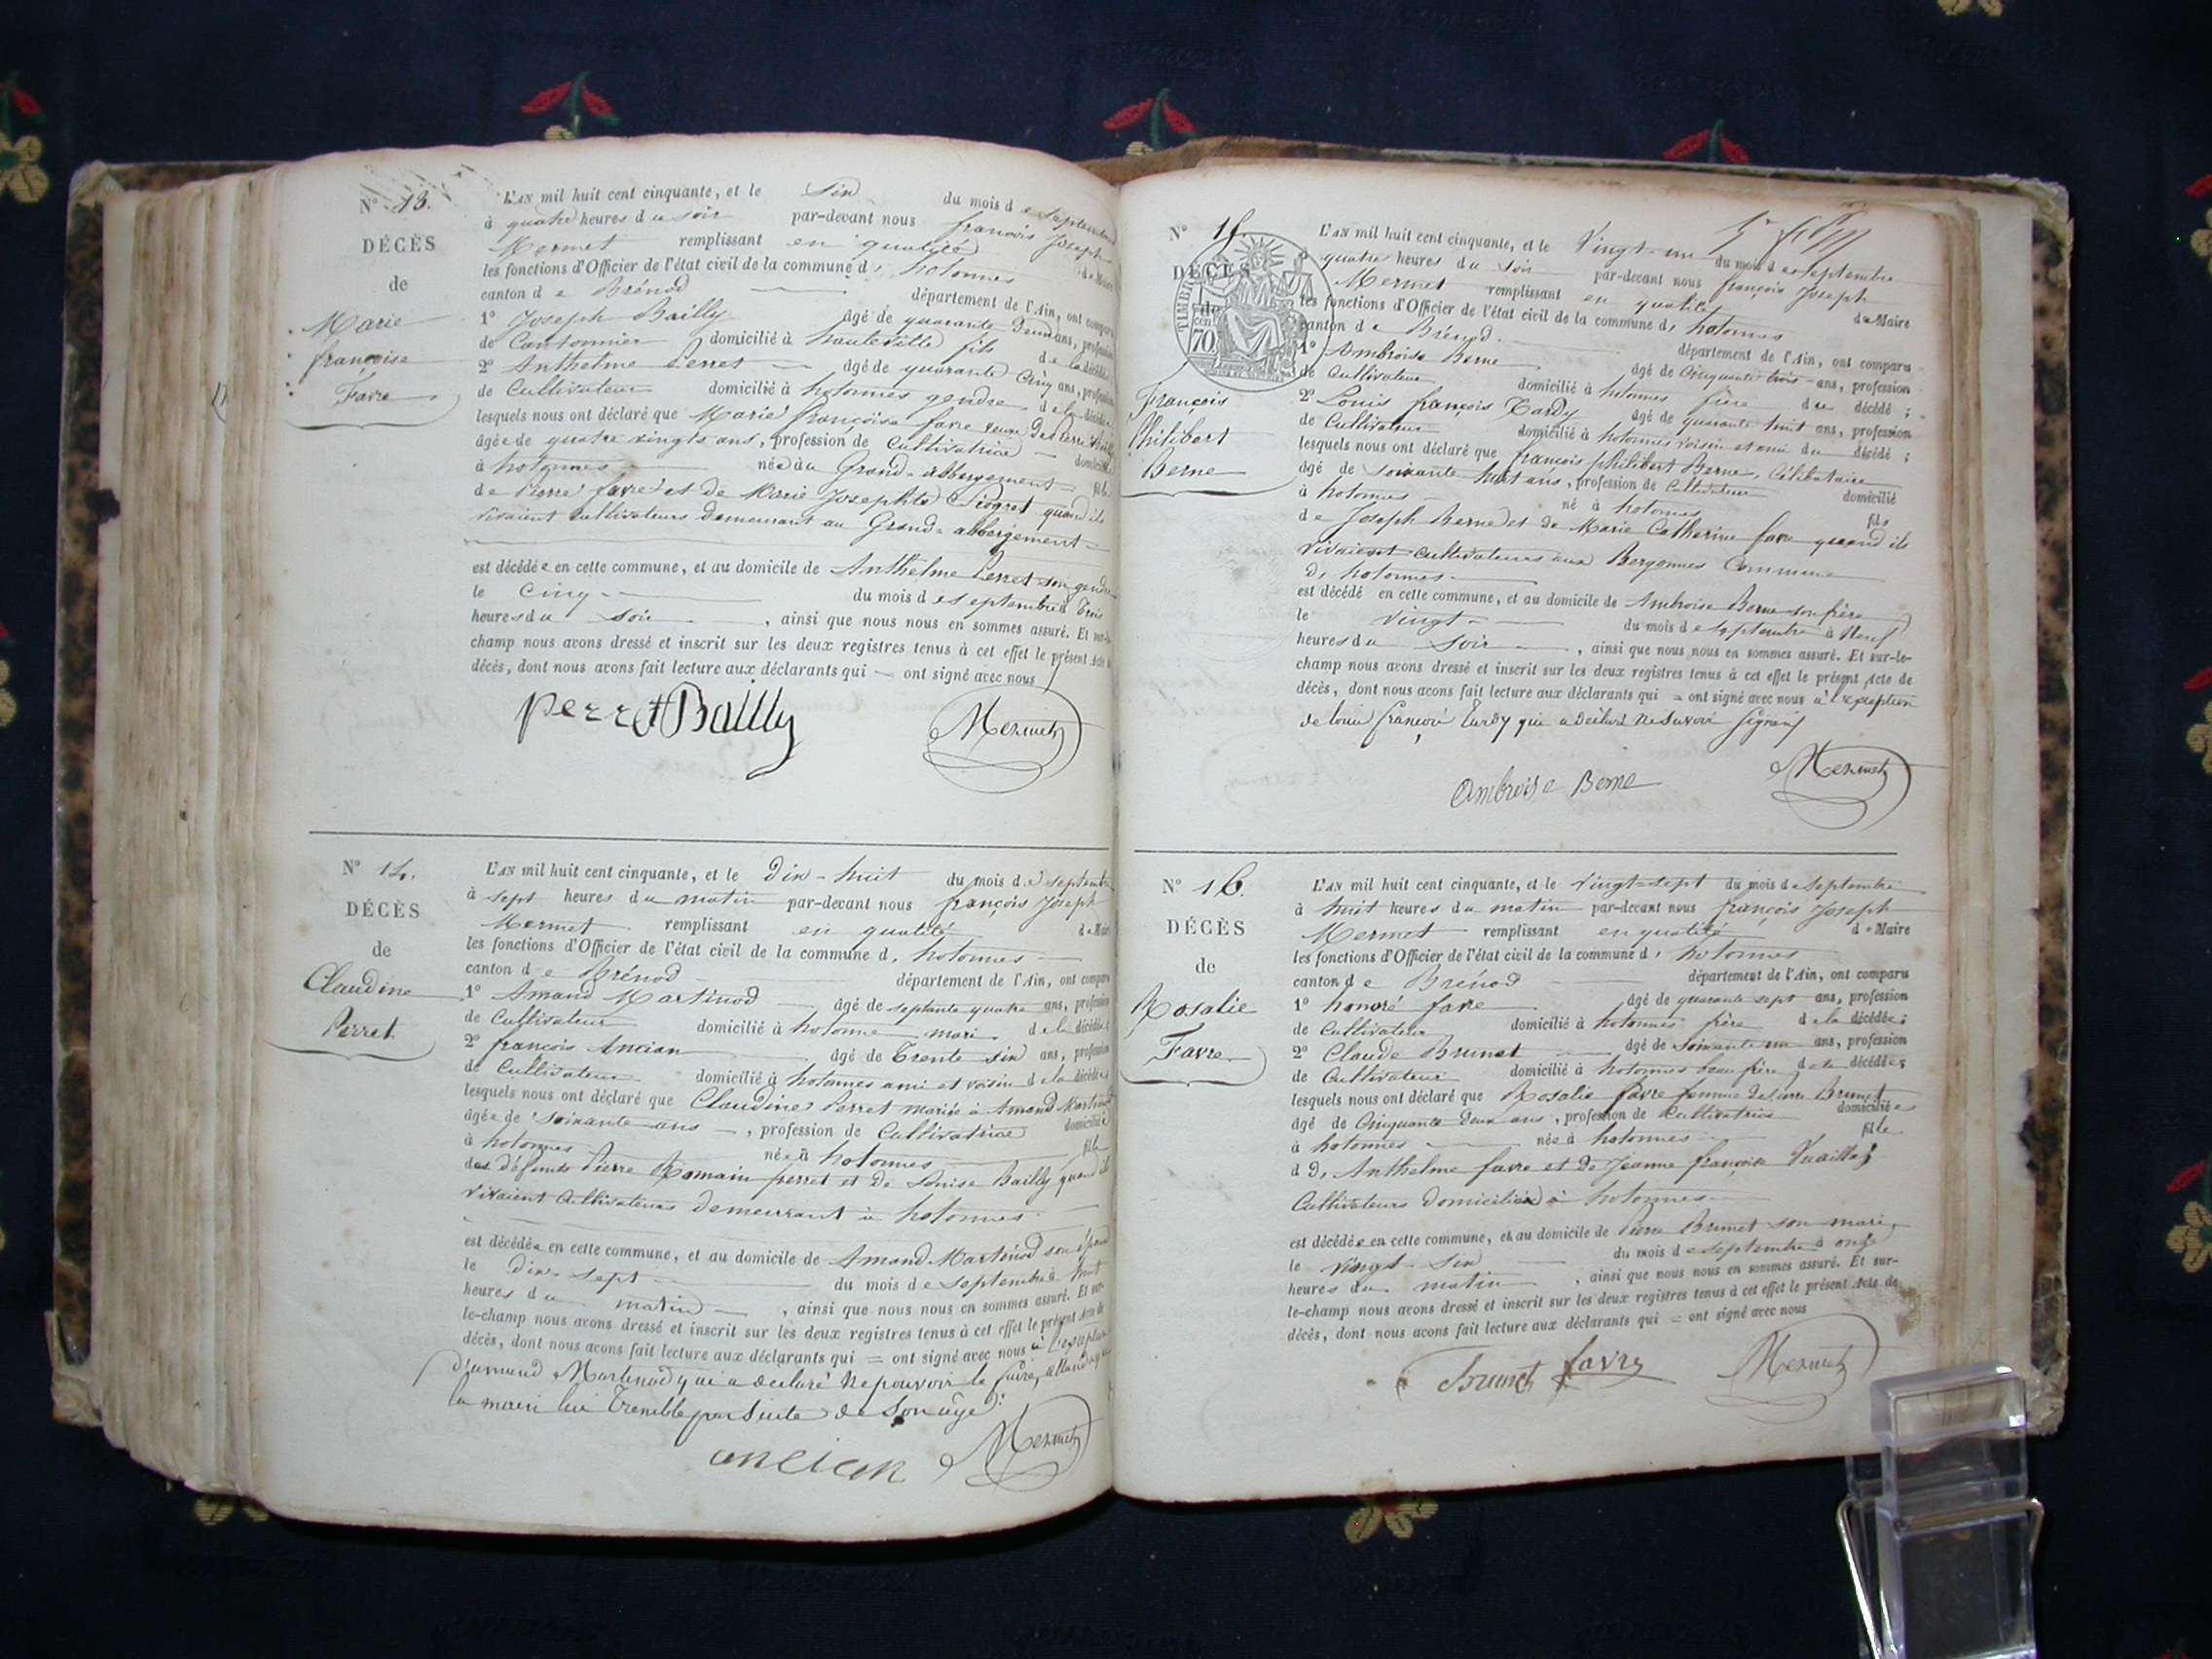 N° 13.
DÉCÈS
de
Marie
françoise
Favre
L'AN mil huit cent cinquante, et le Six du mois de septembre
à quatre heures du soir par-devant nous françois Joseph
Mermet remplissant en qualité de Maire
les fonctions d'Officier de l'état civil de la commune d' hotonnes
canton de Brénod département de l'Ain, ont comparu
1° Joseph Bailly âgé de quarante deux ans, profession
de Cantonnier domicilié à hauteville fils de la décédée
2° Anthelme Perret âgé de quarante Cinq ans, profession
de Cultivateur domicilié à hotonnes gendre de la décédée
lesquels nous ont déclaré que Marie françoise favre veuve de Pierre Bailly
âgée de quatre vingts ans, profession de Cultivatrice domiciliée
à hotonnes née au Grand-abbergement fille
de Pierre favre et de Marie Josephte Piogret quand ils
vivaient cultivateurs demeurant au Grand-abbergement
est décédée en cette commune, et au domicile de Anthelme Perret son gendre
le Cinq du mois de septembre à Trois
heures du soir, ainsi que nous nous en sommes assuré. Et sur-le-
champ nous avons dressé et inscrit sur les deux registres tenus à cet effet le présent Acte de
décès, dont nous avons fait lecture aux déclarants qui ont signé avec nous
Perret Bailly Mermet
N° 14.
DÉCÈS
de
Claudine
Perret
L'AN mil huit cent cinquante, et le Dix-huit du mois de septembre
à sept heures du matin par-devant nous françois Joseph
Mermet remplissant en qualité de Maire
les fonctions d'Officier de l'état civil de la commune d' hotonnes
canton de Brénod département de l'Ain, ont comparu
1° Amand Martinod âgé de septante quatre ans, profession
de Cultivateur domicilié à hotonne mari de la décédée
2° françois Ancian âgé de Trente six ans, profession
de Cultivateur domicilié à hotonnes ami et voisin de la décédée
lesquels nous ont déclaré que Claudine Perret mariée à Amand Martinod
âgée de soixante ans, profession de Cultivatrice domiciliée
à hotonnes née à hotonnes fille
des défunts Pierre Romain perret et de Louise Bailly quand ils
vivaient Cultivateurs demeurant à hotonnes
est décédée en cette commune, et au domicile de Amand Martinod son époux
le dix-sept du mois de septembre à huit
heures du matin, ainsi que nous nous en sommes assuré. Et sur-
le-champ nous avons dressé et inscrit sur les deux registres tenus à cet effet le présent Acte de
décès, dont nous avons fait lecture aux déclarants qui = ont signé avec nous à l'exception
d'amand Martinod qui a déclaré ne pouvoir le faire, attendu que
la main lui Tremble par suite de son âge
ancian Mermet
N° 15.
TIMBRE
70
DÉCÈS
de
François
Philibert
Berne
L'AN mil huit cent cinquante, et le Vingt-un du mois de septembre
quatre heures du soir par-devant nous françois Joseph
Mermet remplissant en qualité de Maire
les fonctions d'Officier de l'état civil de la commune d' hotonnes
canton de Brénod département de l'Ain, ont comparu
1° Ambroise Berne âgé de Cinquante trois ans, profession
de Cultivateur domicilié à hotonnes frère du décédé ;
2° Louis françois Tardy âgé de quarante huit ans, profession
de Cultivateur domicilié à hotonnes voisin et ami du décédé ;
lesquels nous ont déclaré que françois philibert Berne, Célibataire
âgé de soixante huit ans, profession de Cultivateur domicilié
à hotonnes né à hotonnes fils
de Joseph Berne et de Marie Catherine favre quand ils
vivaient cultivateurs aux Bergonnes Commune
d' hotonnes
est décédé en cette commune, et au domicile de Ambroise Berne son frère
le vingt du mois de septembre à Neuf
heures du soir, ainsi que nous nous en sommes assuré. Et sur-le-
champ nous avons dressé et inscrit sur les deux registres tenus à cet effet le présent Acte de
décès, dont nous avons fait lecture aux déclarants qui = ont signé avec nous à l'exception
de louis françois Tardy qui a déclaré ne savoir signer
Ambroise Berne Mermet
N° 16.
DÉCÈS
de
Rosalie
Favre
L'AN mil huit cent cinquante, et le vingt-sept du mois de septembre
à huit heures du matin par-devant nous françois Joseph
Mermet remplissant en qualité de Maire
les fonctions d'Officier de l'état civil de la commune d' hotonnes
canton de Brénod département de l'Ain, ont comparu
1° honoré favre âgé de quarante sept ans, profession
de Cultivateur domicilié à hotonnes frère de la décédée ;
2° Claude Brunet âgé de soixante un ans, profession
de Cultivateur domicilié à hotonnes beau frère de la décédée ;
lesquels nous ont déclaré que Rosalie favre femme de Pierre Brunet
âgé de Cinquante deux ans, profession de Cultivatrice domiciliée
à hotonnes née à hotonnes fille
d D'Anthelme favre et de Jeanne françoise Vuaillat
Cultivateurs domiciliés à hotonnes
est décédée en cette commune, et au domicile de Pierre Brunet son mari
le vingt-six du mois de septembre à onze
heures du matin, ainsi que nous nous en sommes assuré. Et sur-
le-champ nous avons dressé et inscrit sur les deux registres tenus à cet effet le présent Acte de
décès, dont nous avons fait lecture aux déclarants qui = ont signé avec nous
Brunet favre Mermet